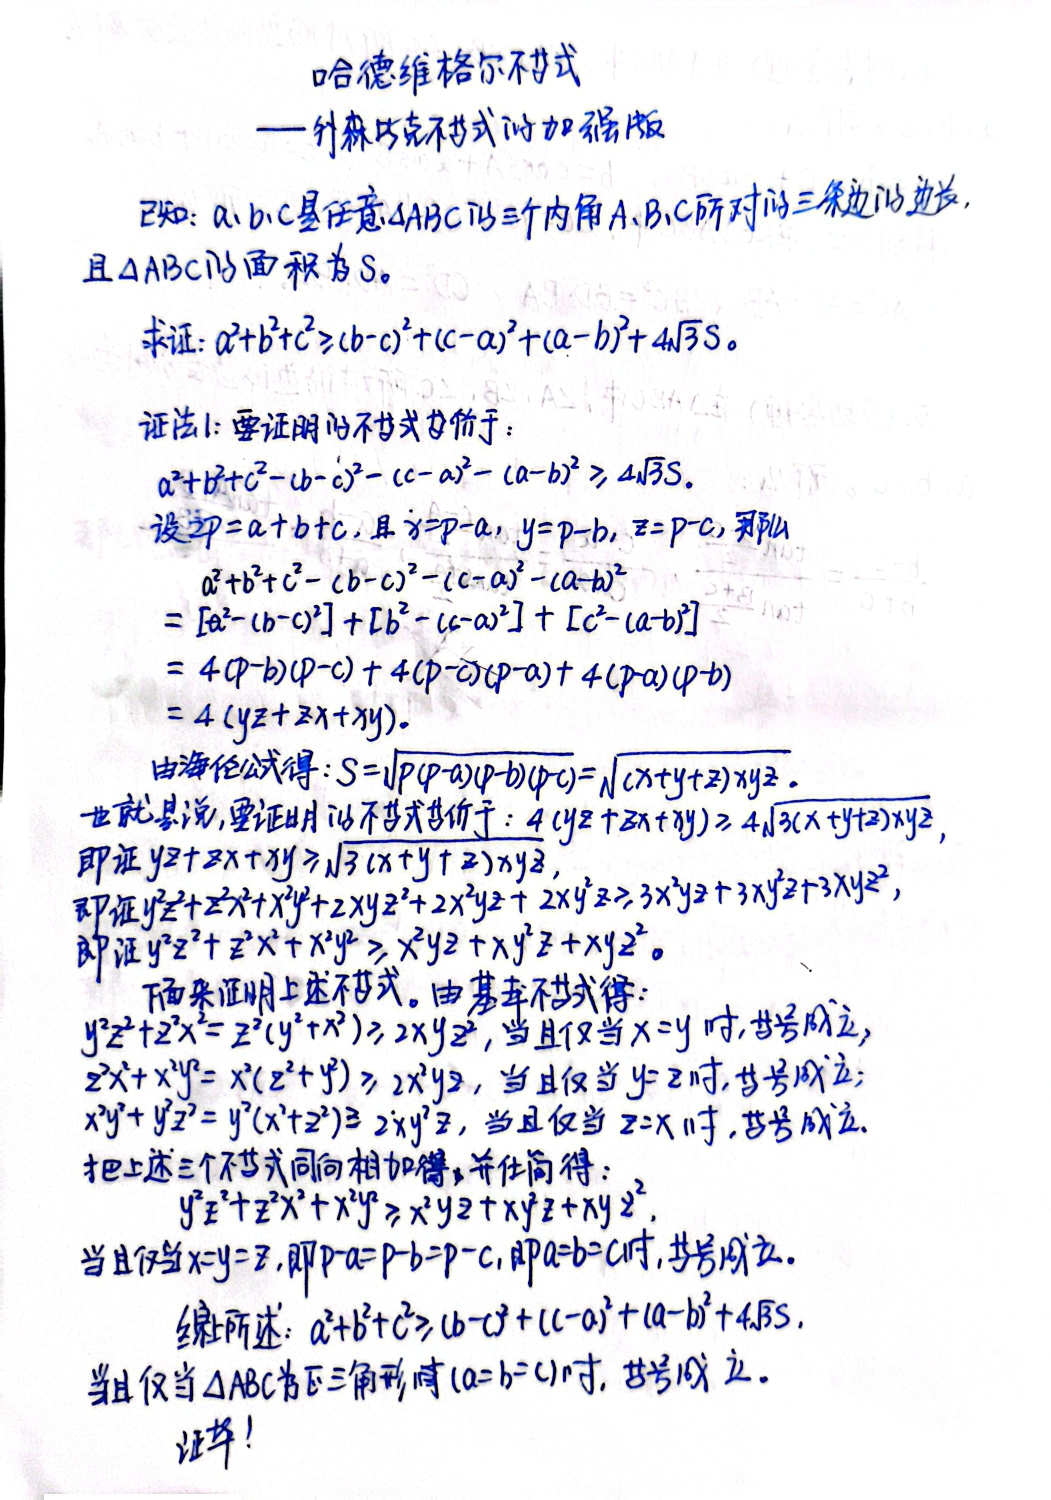 哈德维格尔不等式
——外森比克不等式的加强版
已知：a、b、c是任意△ABC的三个内角A、B、C所对的三条边的边长，
且△ABC的面积为S。
求证：a²+b²+c²≥(b-c)²+(c-a)²+(a-b)²+4√3S。
证法1：要证明的不等式等价于：
a²+b²+c²-(b-c)²-(c-a)²-(a-b)²≥4√3S.
设2p=a+b+c，且x=p-a，y=p-b，z=p-c，那么
a²+b²+c²-(b-c)²-(c-a)²-(a-b)²
=[a²-(b-c)²]+[b²-(c-a)²]+[c²-(a-b)²]
=4(p-b)(p-c)+4(p-c)(p-a)+4(p-a)(p-b)
=4(yz+zx+xy)。
由海伦公式得：S=√p(p-a)(p-b)(p-c)=√(x+y+z)xyz.
也就是说，要证明的不等式等价于：4(yz+zx+xy)≥4√3(x+y+z)xyz，
即证yz+zx+xy≥√3(x+y+z)xyz，
即证y²z²+z²x²+x²y²+2xyz²+2x²yz+2xy²z≥3x²yz+3xy²z+3xyz²，
即证y²z²+z²x²+x²y²≥x²yz+xy²z+xyz²。
下面来证明上述不等式。由基本不等式得：
y²z²+z²x²=z²(y²+x²)≥2xyz²，当且仅当x=y时，等号成立；
z²x²+x²y²=x²(z²+y²)≥2x²yz，当且仅当y=z时，等号成立；
x²y²+y²z²=y²(x²+z²)≥2xy²z，当且仅当z=x时，等号成立.
把上述三个不等式同向相加得，并化简得：
y²z²+z²x²+x²y²≥x²yz+xy²z+xyz²，
当且仅当x=y=z，即p-a=p-b=p-c，即a=b=c时，等号成立。
综上所述：a²+b²+c²≥(b-c)²+(c-a)²+(a-b)²+4√3S，
当且仅当△ABC为正三角形时(a=b=c)时，等号成立。
证毕！